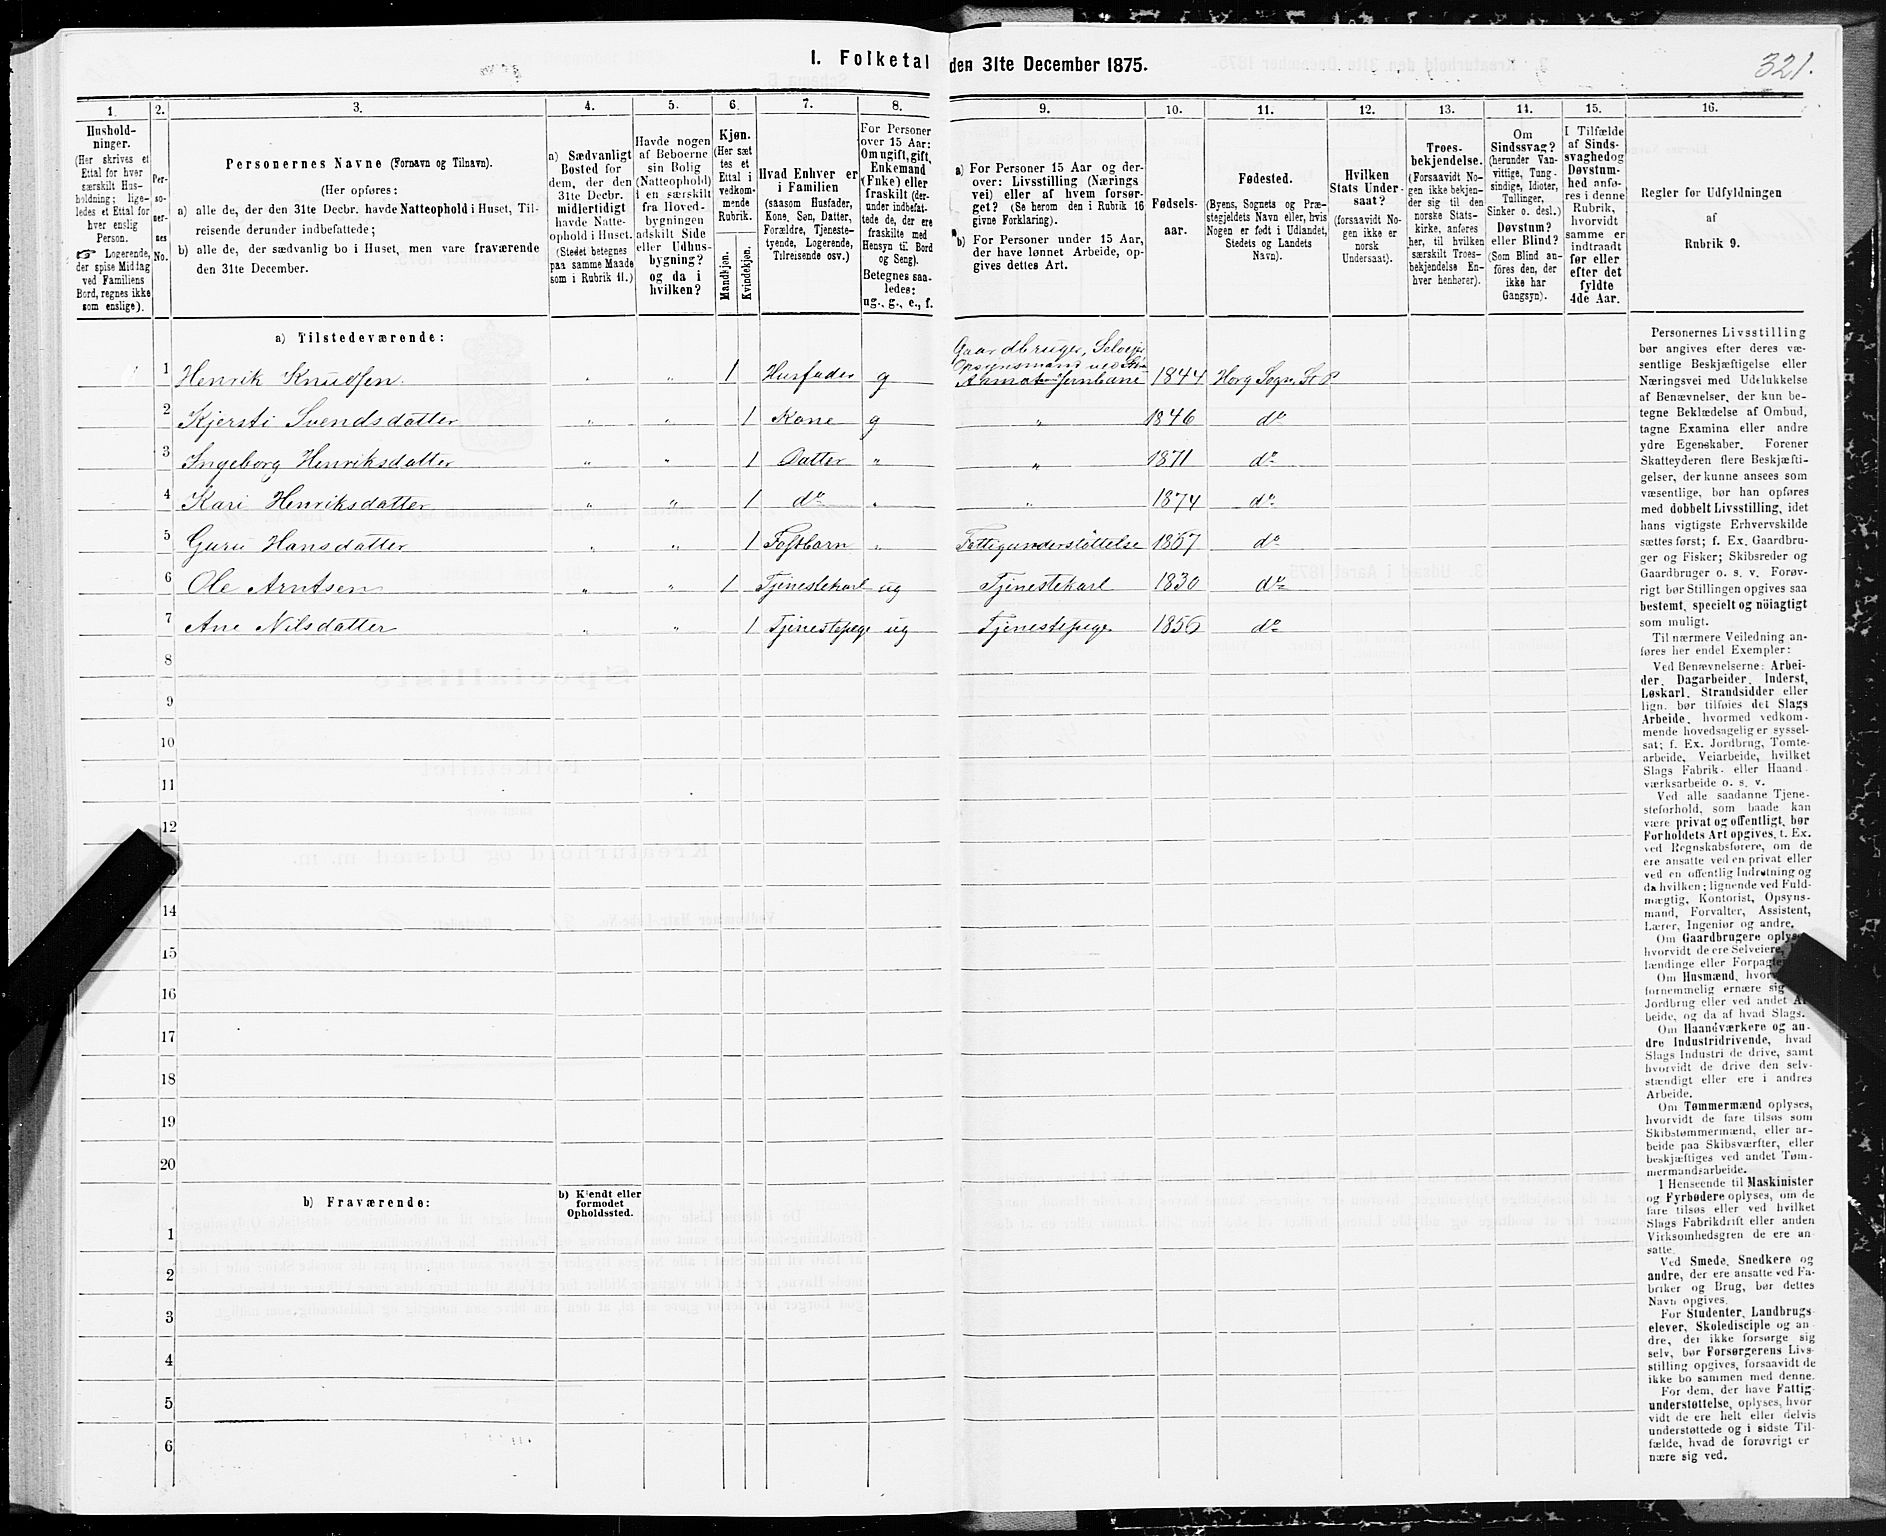 321.
I. Folketal den 31te December 1875.
1. 2. 3. 4. 5. 6. 7. 8. 9. 10. 11. 12. 13. 14. 15. 16.
Hushold-
ninger.
(Her skrives et
Ettal for hver
særskilt Hus-
holdning; lige-
ledes et Ettal for
hver enslig
Person.
☞ Logerende,
der spise Middag
ved Familiens
Bord, regnes ikke
som enslige).
Per-
so-
ner-
nes
No.
Personernes Navne (Fornavn og Tilnavn).
(Her opføres:
a) alle de, der den 31te Decbr. havde Natteophold i Huset, Til-
reisende derunder indbefattede;
b) alle de, der sædvanlig bo i Huset, men vare fraværende
den 31te December.
a) Sædvanligt
Bosted for
dem, der den
31te Decbr.
midlertidigt
havde Natte-
ophold i Huset.
(Stedet betegnes
paa samme Maade
som i Rubrik 11.)
Havde nogen
af Beboerne
sin Bolig
(Natteophold)
i en særskilt
fra Hoved-
bygningen
adskilt Side
eller Udhus-
bygning?
og da i
hvilken?
Kjøn.
(Her sæt
tes et
Ettal i
vedkom-
mende
Rubrik.
Mandkjøn.
Kvindekjøn.
Hvad Enhver er
i Familien
(saasom Husfader,
Kone, Søn, Datter,
Forældre, Tjeneste-
tyende, Logerende,
Tilreisende osv.)
For Personer
over 15 Aar:
Om ugift, gift,
Enkemand
(Enke) eller
fraskilt (der-
under indbefat-
tede de, der ere
fraskilte med
Hensyn til Bord
og Seng).
Betegnes saa-
ledes:
ug., g., e., f.
a) For Personer 15 Aar og der-
over: Livsstilling (Nærings
vei) eller af hvem forsør-
get? (Se herom den i Rubrik 16
givne Forklaring).
b) For Personer under 15 Aar,
der have lønnet Arbeide, op-
gives dettes Art.
Fødsels-
aar.
Fødested.
(Byens, Sognets og Præ-
stegjeldets Navn eller, hvis
Nogen er født i Udlandet,
Stedets og Landets
Navn).
Hvilken
Stats Under-
saat?
(forsaavidt No-
gen ikke er
norsk
Undersaat).
Troes-
bekjendelse.
(Forsaavidt No-
gen ikke bekjen-
der sig til den
norske Stats-
kirke, anføres
her, til hvilken
særskilt Troes-
bekjendelse En-
hver henhører).
Om
Sindssvag?
(herunder Van-
vittige, Tung-
sindige, Idioter,
Tullinger,
Sinker o. desl.)
Døvstum?
eller Blind?
(Som Blind an-
føres den, der
ikke har
Gangsyn).
I Tilfælde
af Sinds-
svaghed og
Døvstum-
hed anfø-
res i denne
Rubrik,
hvorvidt
samme er
indtraadt
før eller
efter det
fyldte
4de Aar.
Regler for Udfyldningen
af
Rubrik 9.
a) Tilstedeværende:
Gaardbruger, Selveier
1 Henrik Knudsen " " 1 Husfader g 1844 Horg Sogn
2 Kjersti Svendsdatter " " 1 Kone g " 1846 do
3 Ingeborg Henriksdatter " " 1 Datter " " 1871 do
4 Kari Henriksdatter " " 1 do " " 1874 do
5 Guru Hansdatter " " 1 Fosbarn " Fattigunderstøttelse 1867 do
6 Ole Arntsen " " 1 Tjenestekarl ug Tjenestekarl 1830 do
7 Ane Nilsdatter " " 1 Tjenestepige ug Tjenestepige 1856 do
8
9
10
11
12
14
15
16
17
18
19
20
b) Fraværende:
b) Kjendt eller
formodet
Opholdssted.
1
2
3
4
5
6
Personernes Livsstilling
bør angives efter deres væ-
sentlige Beskjæftigelse eller
Næringsvei med Udelukkelse
af Benævnelser, der kun be-
tegne Beklædelse af Ombud,
tagne Examina eller andre
ydre Egenskaber. Forener
Skatteyderen flere Beskjæfti-
gelser, der kunne ansees som
væsentlige, bør han opføres
med dobbelt Livsstilling, idet
hans vigtigste Erhvervskilde
sættes først; f. Ex. Gaardbru-
ger og Fisker; Skibsreder og
Gaardbruger o. s. v. Forøv-
rigt bør Stillingen opgives saa
bestemt, specielt og nöiagtigt
som muligt.
Til nærmere Veiledning an-
føres her endel Exempler:
Ved Benævnelserne: Arbei-
der, Dagarbeider, Inderst,
Løskarl, Strandsidder eller
lign. bør tilføies det Slags
Arbeide, hvormed vedkom-
mende hovedsagelig er syssel-
sat; f. Ex. Jordbrug, Tomte-
arbeide, Veiarbeide, hvilket
Slags Fabrik- eller Haand-
værksarbeide o. s. v.
Ved alle saadanne Tjene-
steforhold, som baade kan
være privat og offentligt, bør
Forholdets Art opgives, t. Ex.
ved Regnskabsførere, om de
ere ansatte ved en privat eller
ved en offentlig Indretning og
da hvilken; lignende ved Fuld-
mægtig, Kontorist, Opsyns-
mand, Forvalter, Assistent,
Lærer, Ingeniør og andre.
Om Gaardbrugere oplyses
hvorvidt de ere Selveiere,
lændinge eller
Om Husmænd,
fornemmelig ernære sig
Jordbrug eller ved andet Ar-
beide, og da af hvad Slags.
Om Haandværkere og an-
dre Industridrivende, hvad
Slags Industri de drive, samt
hvorvidt de drive den selv-
stændigt eller ere i andres
Arbeide.
Om Tømmermænd oplyses,
hvorvidt de fare tilsøs som
Skibstømmermænd, eller ar-
beide paa Skibsværfter, eller
beskjæftiges ved andet Tøm-
mermandsarbeide.
I Henseende til Maskinister
og Fyrbødere oplyses, om de
fare tilsøs eller ved hvilket
Slags Fabrikdrift eller anden
Virksomhedsgren de ere an-
satte.
Ved Smede, Snedkere og
andre, der ere ansatte ved Fa-
briker og Brug, bør dettes
Navn opgives.
For Studenter, Landbrugs-
elever, Skoledisciple og an-
dre, der ikke forsørge sig
selv, bør Forsørgerens Livs-
stilling opgives, forsaavidt de
ikke bo sammen med denne.
For dem, der have Fattig-
understøttelse, oplyses, hvor
vidt de ere helt eller delvis
understøttede og i sidste Til-
fælde, hvad de forøvrigt er
nære sig ved.